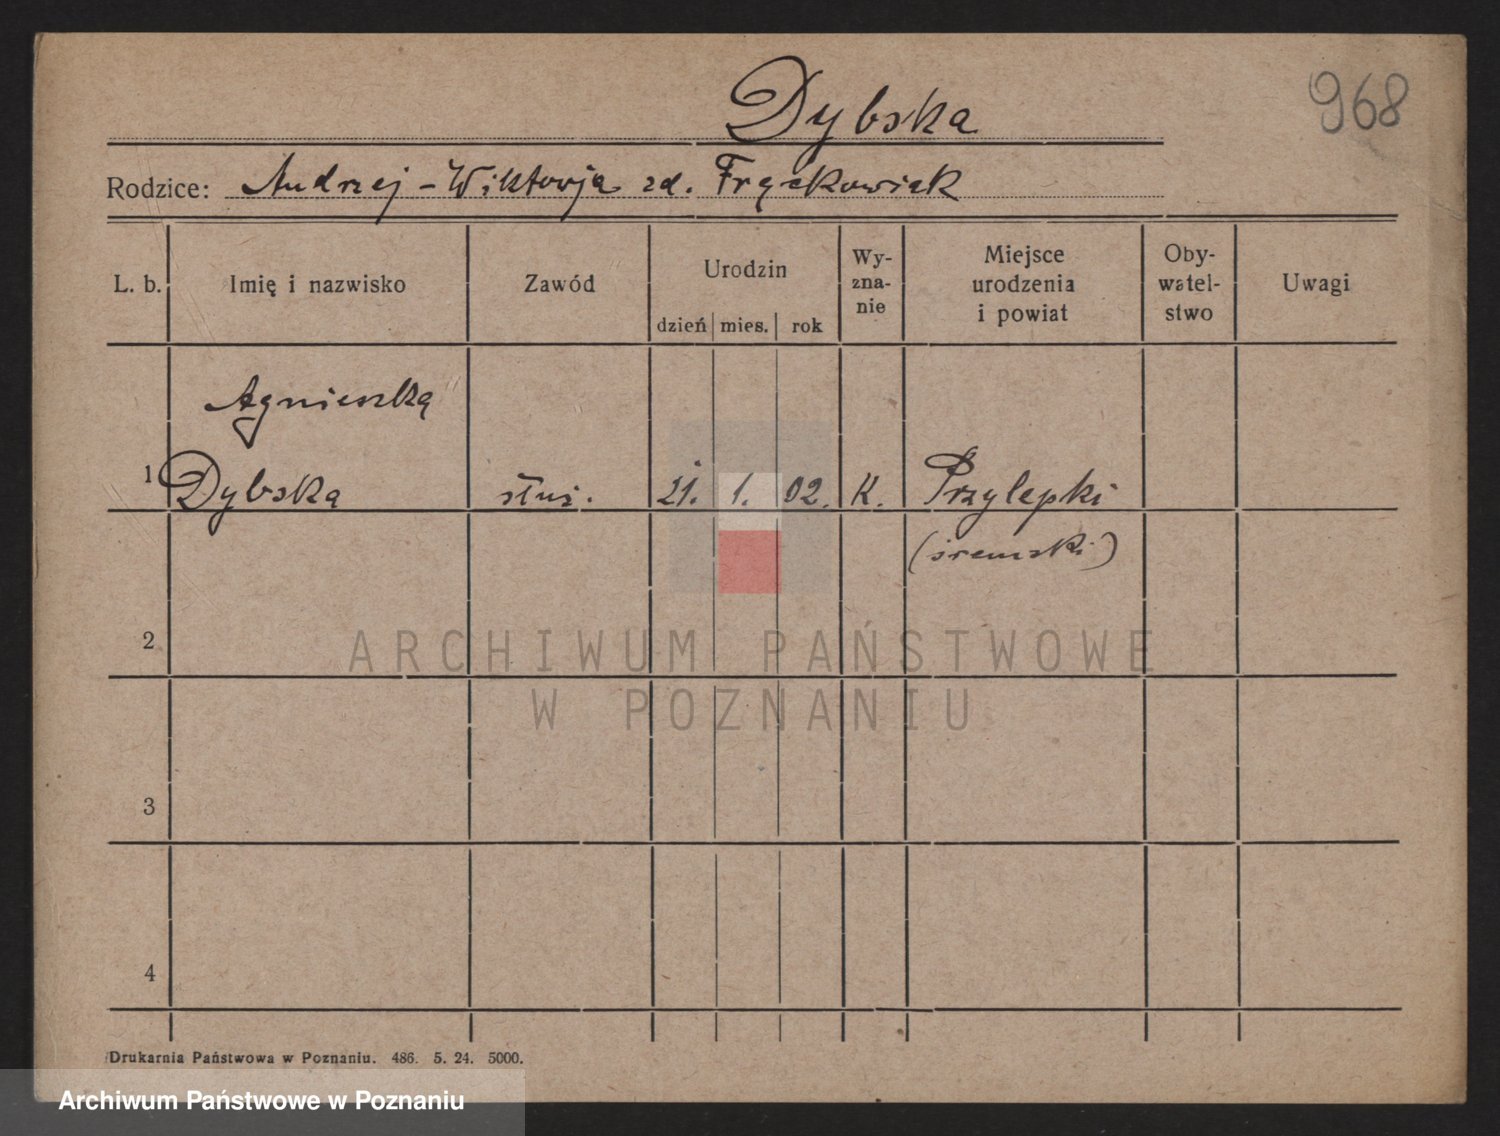 Dybska
968
Rodzice: Andrzej - Wiktorja zd. Frąckowiak
L. b. Imię i nazwisko Zawód Urodzin dzień mies. rok Wy-zna-nie Miejsce urodzenia i powiat Oby-watel-stwo Uwagi
Agnieszka
1 Dybska służ. 21. 1. 02. K. Przylepki
(śremski)
2
3
4
ARCHIWUM PAŃSTWOWE
W POZNANIU
Drukarnia Państwowa w Poznaniu. 486. 5. 24. 5000.
Archiwum Państwowe w Poznaniu